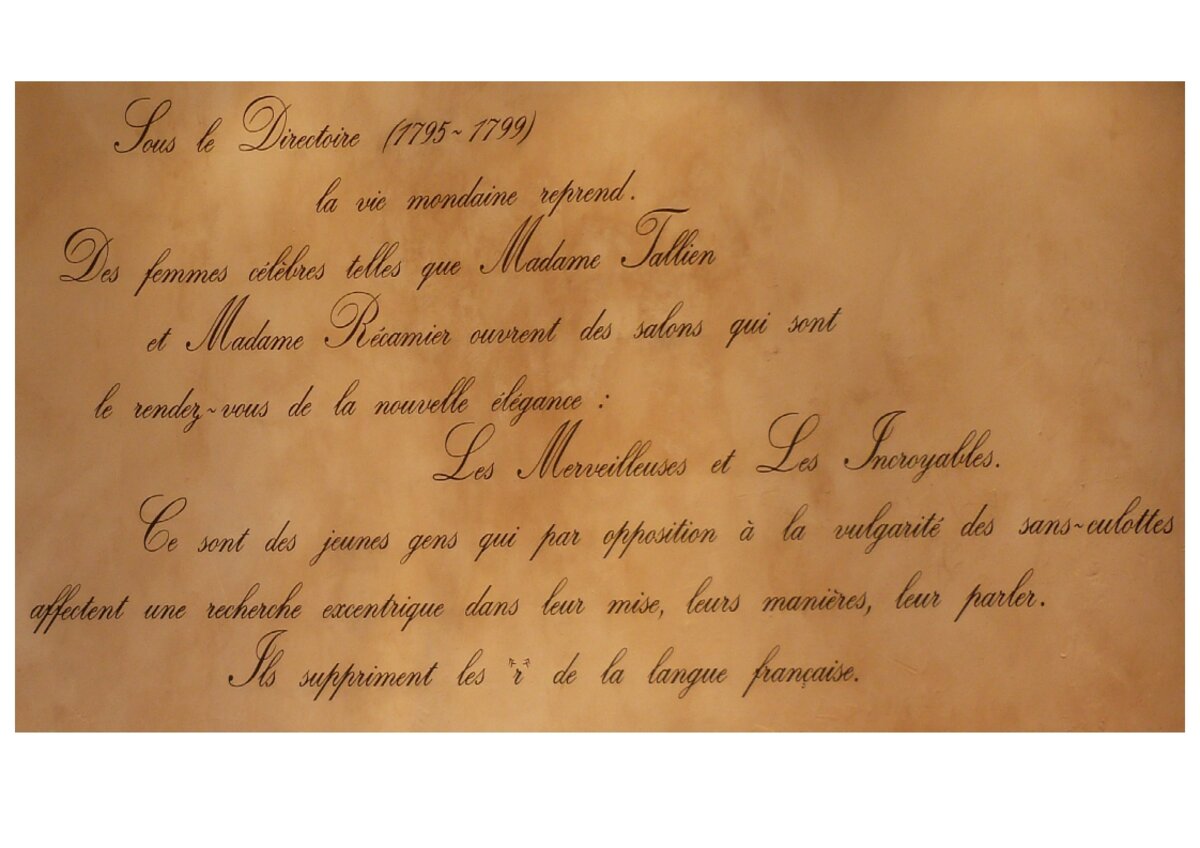 Sous le Directoire (1795~1799)
la vie mondaine reprend.
Des femmes célèbres telles que Madame Tallien
et Madame Récamier ouvrent des salons qui sont
le rendez~vous de la nouvelle élégance :
Les Merveilleuses et Les Incroyables.
Ce sont des jeunes gens qui par opposition à la vulgarité des sans~culottes
affectent une recherche excentrique dans leur mise, leurs manières, leur parler.
Ils suppriment les "r" de la langue française.